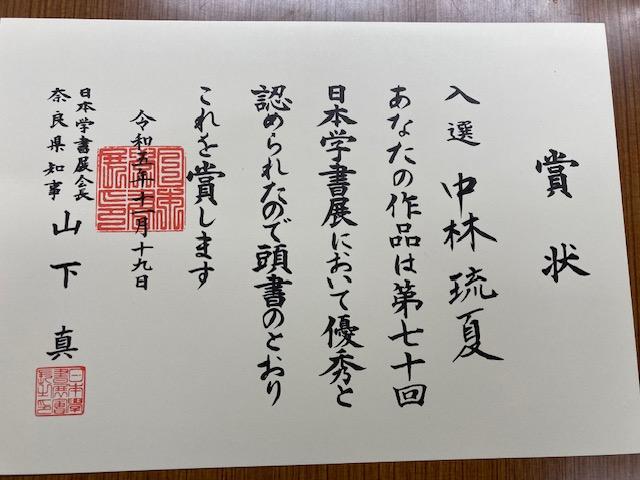 賞状
入選 中林琉夏
あなたの作品は第七十回
日本学書展において優秀と
認められたので頭書のとおり
これを賞します
令和五年十一月十九日
日本学書展会長
奈良県知事 山下 真